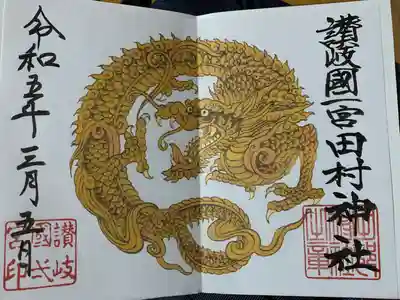 讃岐國一宮田村神社
令和五年三月五日
讃岐國弌宮印